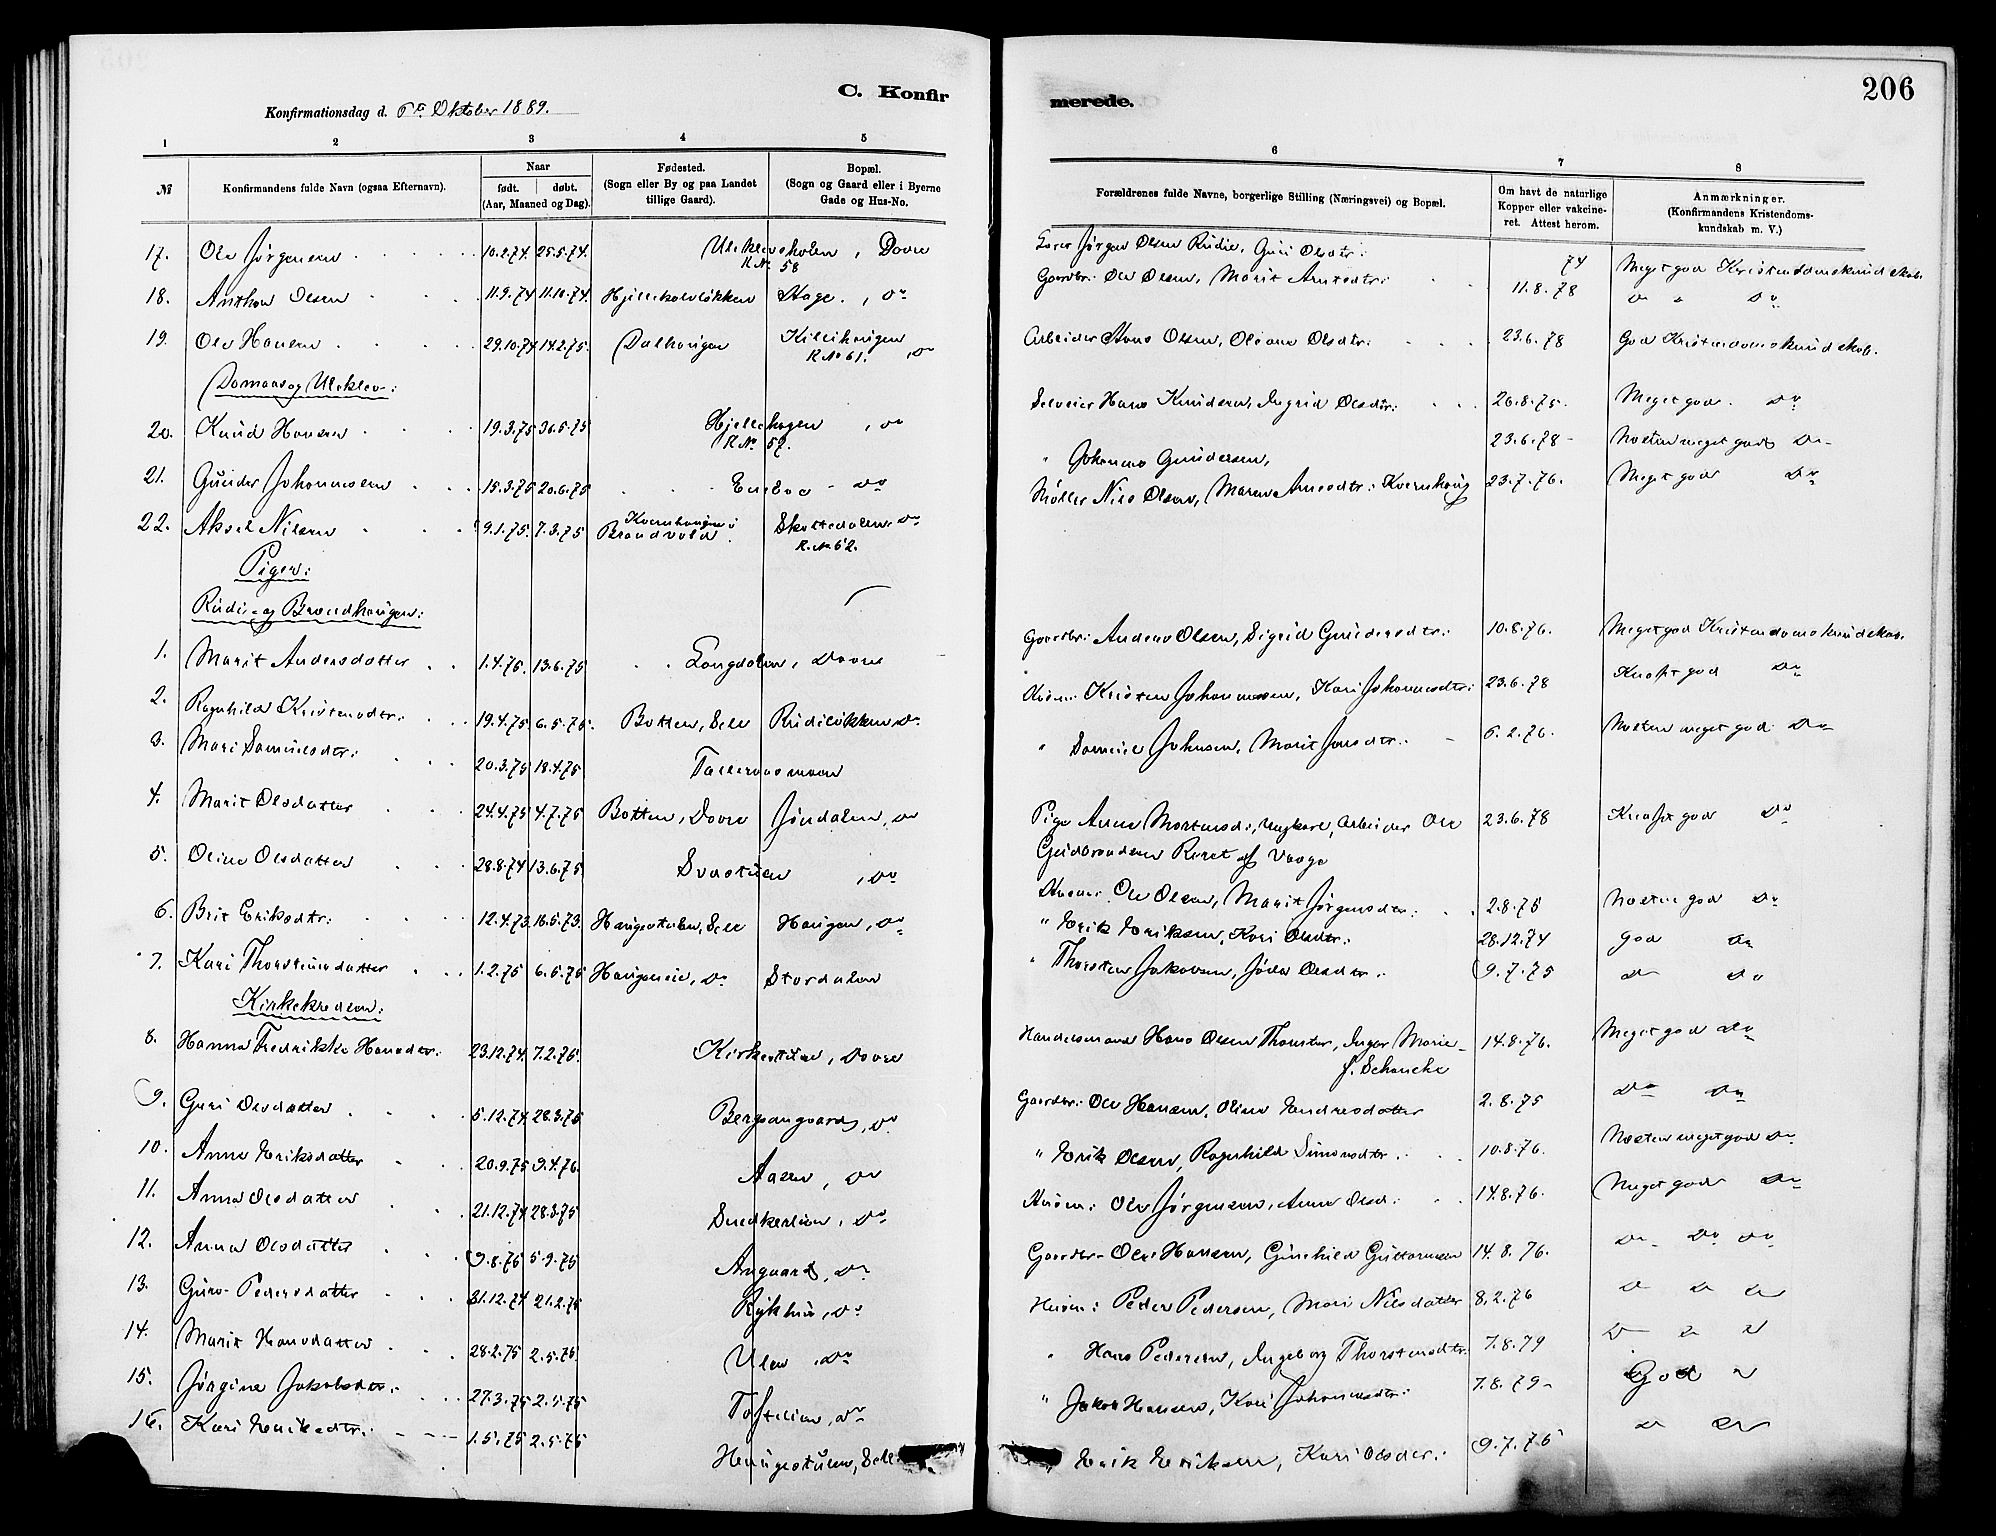 206
C. Konfir
merede.
Konfirmationsdag d. 6te Oktober 1889.
1 2 3 4 5 6 7 8
№
Konfirmandens fulde Navn (ogsaa Efternavn).
Naar
født. døbt.
(Aar, Maaned og Dag).
Fødested.
(Sogn eller By og paa Landet
tillige Gaard).
Bopæl.
(Sogn og Gaard eller i Byerne
Gade og Hus-No.
Forældrenes fulde Navne, borgerlige Stilling (Næringsvei) og Bopæl.
Om havt de naturlige
Kopper eller vakcine-
ret. Attest herom.
Anmærkninger.
(Konfirmandens Kristendoms-
kundskab m. V.)
17. Ole Jørgensen 10.2.74. 25.5.74. Uleklevskolen, Dovre Jørgen Olsen Rudie, Guri Olsdtr: 74 Meget god Kristendomskundskab.
R. № 58
18. Anthon Olsen 11.9.74 11.10.74. Hjellekolvløkken Hage, Do Gaardbr: Ole Olsen, Marit Amtsdtr: 11.8.78 Do Do
19. Ole Hansen 29.10.74 14.2.75. Dalhaugen Killihaugen, Do Arbeider Hans Olsen, Oleane Olsdtr: 23.6.78 God Kristendomskundskab.
R. № 61.
Domaas og Uleklev:
20. Knud Hansen 19.3.75 30.5.75 Hjellehagen, Do Selveier Hans Knudsen, Ingrid Olsdtr: 26.8.75. Meget god. Do
R. № 57.
21. Gunder Johannesen 15.3.75 20.6.75 Enebo - Do " Johannes Gundersen, 23.6.78 - Næsten meget god Do
22. Aksel Nilsen 9.1.75. 7.3.75 Kvernhaugen i Brandvold Skottedalen, Do Møller Nils Olsen, Maren Arnesdtr: Kvernhaug 23.7.76. Meget god Do
R. № 62.
Piger:
Rudie- og Brændhaugen:
1. Marit Andersdatter 1.4.75. 13.6.75 Langdalen, Dovre Gaardbr: Anders Olsen, Sigrid Gundersdtr: 10.8.76. Meget god Kristendomskundskab.
2. Ragnhild Kristensdtr: 19.4.75 6.5.75. Botten, Sell Rudiløkken, Do Husm: Kristen Johannessen, Kari Johannesdtr: 23.6.78 Knapt god Do
3. Mari Samuelsdtr: 20.3.75 18.4.75 Talleraasmoen " Samuel Johnsen, Marit Jonsdtr: 6.2.76. Næsten meget god Do
4. Marit Olsdatter 24.4.75 4.7.75 Botten, Dovre Jøndalen, Do Pige Anne Mortensd:, Ungkarl, Arbeider Ole 23.6.78 Knapt god Do
Gudbrandsen Reret af Vaage
5. Oline Olsdatter 28.8.74 13.6.75. Svastuen, Do Husm: Ole Olsen, Marit Jørgensdtr: 2.8.75 Næsten god Do
6. Brit Eriksdtr: 12.4.73. 16.5.73. Haugestulen, Sell Haugen, Do " Erik Eriksen, Kari Olsdtr: 28.12.74 God Do
7. Kari Thorsteinsdatter 1.2.75 6.5.75 Haugseie, Do Stordalen " Thorsten Jakobsen, Olsdtr: 9.7.75 Do Do
Kirkekredsen:
8. Hanna Fredrikke Hansdtr: 23.12.74. 7.2.75. Kirkestuen, Dovre Handelsmand Hans Olsen Thorster, Inger Marie 14.8.76. Meget god Do
f. Schancke
9. Guri Olsdatter 5.12.74 28.3.75 Bergsengaard, Do Gaardbr: Ole Hansen, Oline Endresdatter 2.8.75 Do Do
10. Anne Eriksdatter 20.9.75 9.4.76. Aasen, Do " Erik Olsen, Ragnhild Simensdtr. 10.8.76. Næsten meget god Do
11. Anna Olsdatter 21.12.74 28.3.75 Snedkerlien, Do Husm: Ole Jørgensen, Anne Olsd: 14.8.76. Meget god Do
12. Anna Olsdatter 9.8.75 5.9.75 Angaard, Do Gaardbr- Ole Hansen, Gunhild Guttormsen 14.8.76. Do Do Do
13. Guro Pedersdatter 31.12.74 21.2.75 Do Husm: Peder Pedersen, Mari Nilsdatter 8.2.76 Do Do Do
14. Marit Hansdatter 28.2.75 2.5.75. Ulen, Do " Hans Pedersen, Ingeborg Thorstensdtr: 7.8.79 Do Do Do
15. Jørgine Jakobsdtr: 27.3.75 2.5.75 Toftelien, Do " Jakob Hansen, Kari Johannesdtr: 7.8.79 - God "
16. Kari Eriksdtr: 1.5.75 2.5.75 Haugestulen, Sell " Erik Eriksen, Kari Olsdtr: 9.7.75 Do Do